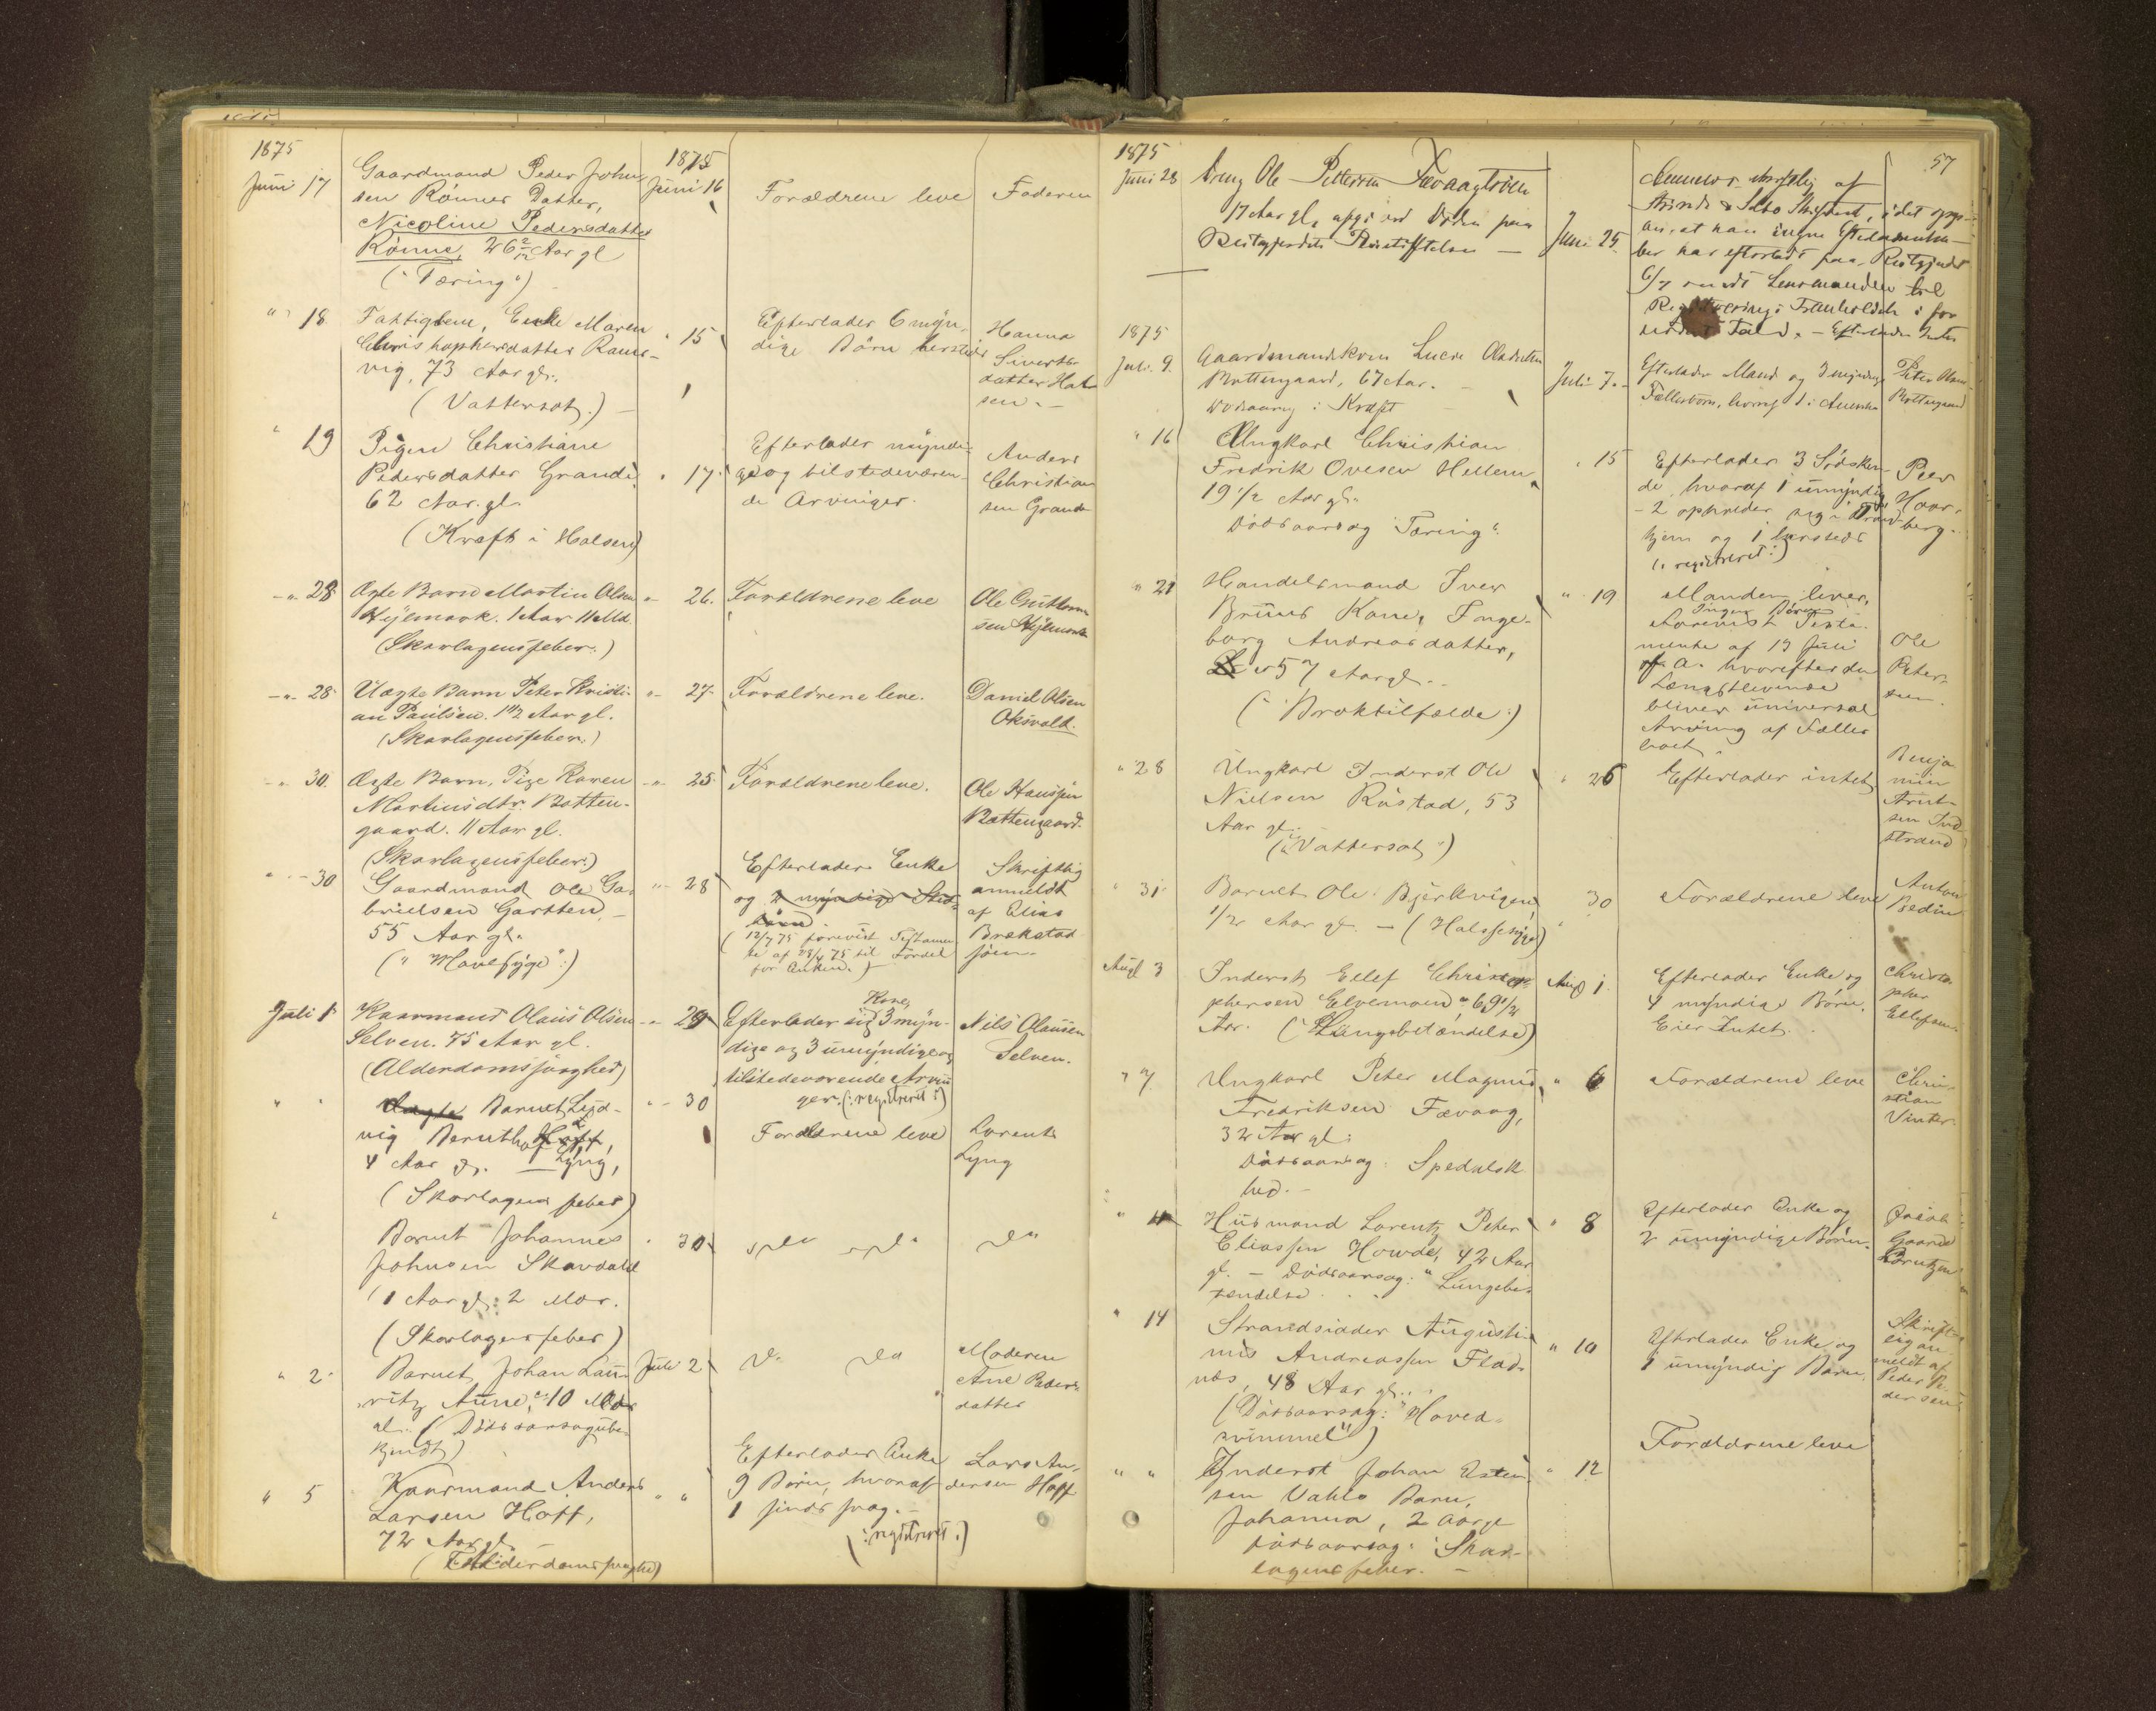 1875
Juni 17
Gaardmand Peder John-
sen Rönnes Datter,
Nicoline Pedersdatter
Rönne, 26 2/12 Aar gl
("Tæring")
1875
Juni 16
Forældrene leve
Faderen
" 18
Fattiglem, Enke Maren
Christophersdatter Rams-
vig, 73 Aar gl.
(Vattersot.) -
" 15
Efterlader 6 myn-
dige Börn hersteds
Hanna
Siverts-
datter Hal-
sen. -
" 19
Pigen Christiane
Pedersdatter Grande
62 Aar gl.
(Kræft i Halsen)
" 17.
Efterlader myndi-
ge og tilstedeværen-
de Arvinger.
Anders
Christian
sen Grande
-"- 28
Ægte Barn Martin Olsen
Hejlmark. 1 Aar 11 Md.
(Skarlagensfeber.)
" 26.
Forældrene leve
Ole Guttorm
sen Hejlmark
-"- 28
Uægte Barn Peter Kristi-
an Paulsen. 1 1/2 Aar gl.
(Skarlagensfeber.)
" 27.
Forældrene leve.
Daniel Olsen
Oksvold.
-"- 30.
Ægte Barn, Pige Karen
Martinsdtr. Botten-
gaard. 11 Aar gl.
(Skarlagensfeber.)
-"- 25
Forældrene leve.
Ole Hansen
Bottengaard.
" - 30
Gaardmand Ole Ga-
brielsen Gartten, -
55 Aar gl.
("Mavesyge".)
"- 28
Efterlader Enke
og 2 myndige Sted-
börn.
(12/7 75 forevist Testamen-
te af 28/4 75 til Fordel
for Enken.)
Skriftlig
anmeldt
af Elias
Brekstad
söen
Juli 1
Kaarmand Olaus Olsen
Selven. 75 Aar gl.
(Alderdomssvaghed)
-"- 29
Kone,
Efterlader sig 3 myn-
dige og 3 umyndige og
tilstedeværende Arvin
ger. (: registreret :)
Nils Olausen
Selven.
" "
Uægte Barnet Lud-
vig Bernthof Hoff,
4 Aar gl. - Lyng,
(Skarlagens feber)
"- 30
Forældrene leve
Lorents
Lyng
"
Barnet Johannes
Johnsen Skavdahl
1 Aar gl. 2 Mdr.
(Skarlagensfeber)
" 30
do do
do
" 2
Barnet Johan Lau-
ritz Aune, 10 Mdr
gl. (Dödsaarsag ube-
kjendt)
Juli 2
do do
Moderen
Ane Peders-
datter
" 5
Kaarmand Anders
Larsen Hoff,
72 Aar gl.
(Alderdomssvaghed)
" "
Efterlader Enke
9 Börn, hvoraf
1 sindssvag. -
(: registreret :)
Lars An-
dersen Hoff
57
1875
Juni 28
Dreng Ole Pettersen Fævaagtröen
17 Aar gl, afgi ved Döden paa
Reitgjerdets Pleiestiftelse -
Juni 25.
af
Strinde & Selbo Skifteret, idet opgi-
1875
Juli 9.
Gaardmandskone Lucie Olsdatter
Bottengaard, 67 Aar. -
Dödsaarsag: Kræft
Juli 7. -
Efterlader Mand og 3 myndige
Fællesbörn, hvoraf 1 i Amerika
Peter
Bottengaard
" 16
Ungkarl Christian
Fredrik Ovesen Hellem,
19 1/2 Aar gl.
Dödsaarsag "Tæring".
" 15
Efterlader 3 Södsken-
de, hvoraf 1 umyndig
- 2 opholder sig i Trond-
hjem og 1 hersteds
(: registreret :)
Peer
Haar-
berg.
" 21
Handelsmand Iver
Bruns Kone, Inge-
borg Andreasdatter,
57 Aar gl.
(: Broktilfælde :)
" 19
Manden lever,
Ingen Börn
Forevist Testa-
mente af 13 Juli
d. A. hvorefter den
Længstlevende
bliver universal
Arving af Fælles
boet.
Ole
Peter-
sen.
" 28
Ungkarl Inderst Ole
Nielsen Rustad, 53
Aar gl.
("Vattersot")
" 26
Efterlader intet
Benja-
min
Arnt-
sen Ind-
strand
" 31
Barnet Ole Bjerkvigen
1/2 Aar gl. - (Halssyge)
" 30
Forældrene leve
Anton
Bedin
Augt 3
Inderst Ellef Christo-
phersen Elvemoen 69 1/2
Aar. (Lungebetændelse)
Aug 1
Efterlader Enke og
4 myndige Börn,
Eier Intet.
Christo-
pher
Ellefsen
" 7
Ungkarl Peter Magnus
Fredriksen Fævaag,
32 Aar gl.
Dödsaarsag: Spedalsk
hed. -
" 6
Forældrene leve
Chri-
stian
Vinter
" 11
Husmand Lorentz Peter
Eliassen Howde, 42 Aar
gl. - Dödsaarsag: "Lungebe-
tændelse.
" 8
Efterlader Enke og
2 umyndige Börn.
Jacob
Gaard
Lorntzen
" 14
Strandsidder Augusti-
nus Andreassen Flad-
nes, 48 Aar gl.
(Dödsaarsag: "Hoved-
svimmel")
" 10
Efterlader Enke og
1 umyndig Barn.
Skrift-
lig an-
meldt af
Peder Pe-
dersen
" "
Inderst Johan Esten-
sen Vahls Barn,
Johanna, 2 Aar gl
Dödsaarsag: Skar-
lagensfeber. -
" 12
Forældrene leve